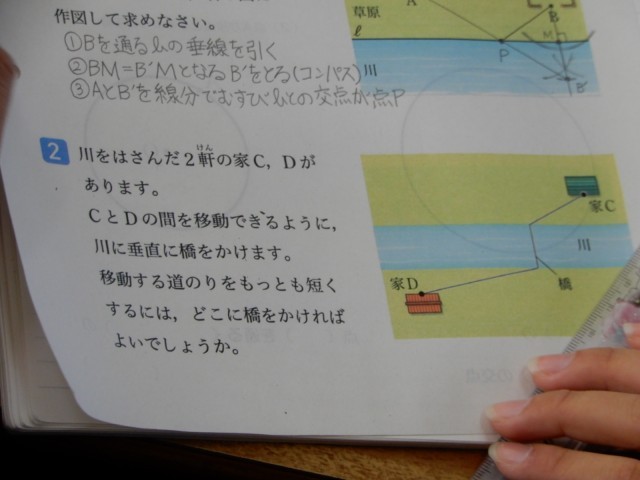 作図して求めなさい。
①Bを通るℓの垂線を引く
②BM=B'MとなるB'をとる(コンパス)
③AとB'を線分でむすびℓとの交点が点P
草原
A
B
M
ℓ
P
川
B'
2 川をはさんだ2軒の家C，Dが
けん
あります。
CとDの間を移動できるように，
川に垂直に橋をかけます。
移動する道のりをもっとも短く
するには，どこに橋をかければ
よいでしょうか。
家C
川
家D
橋